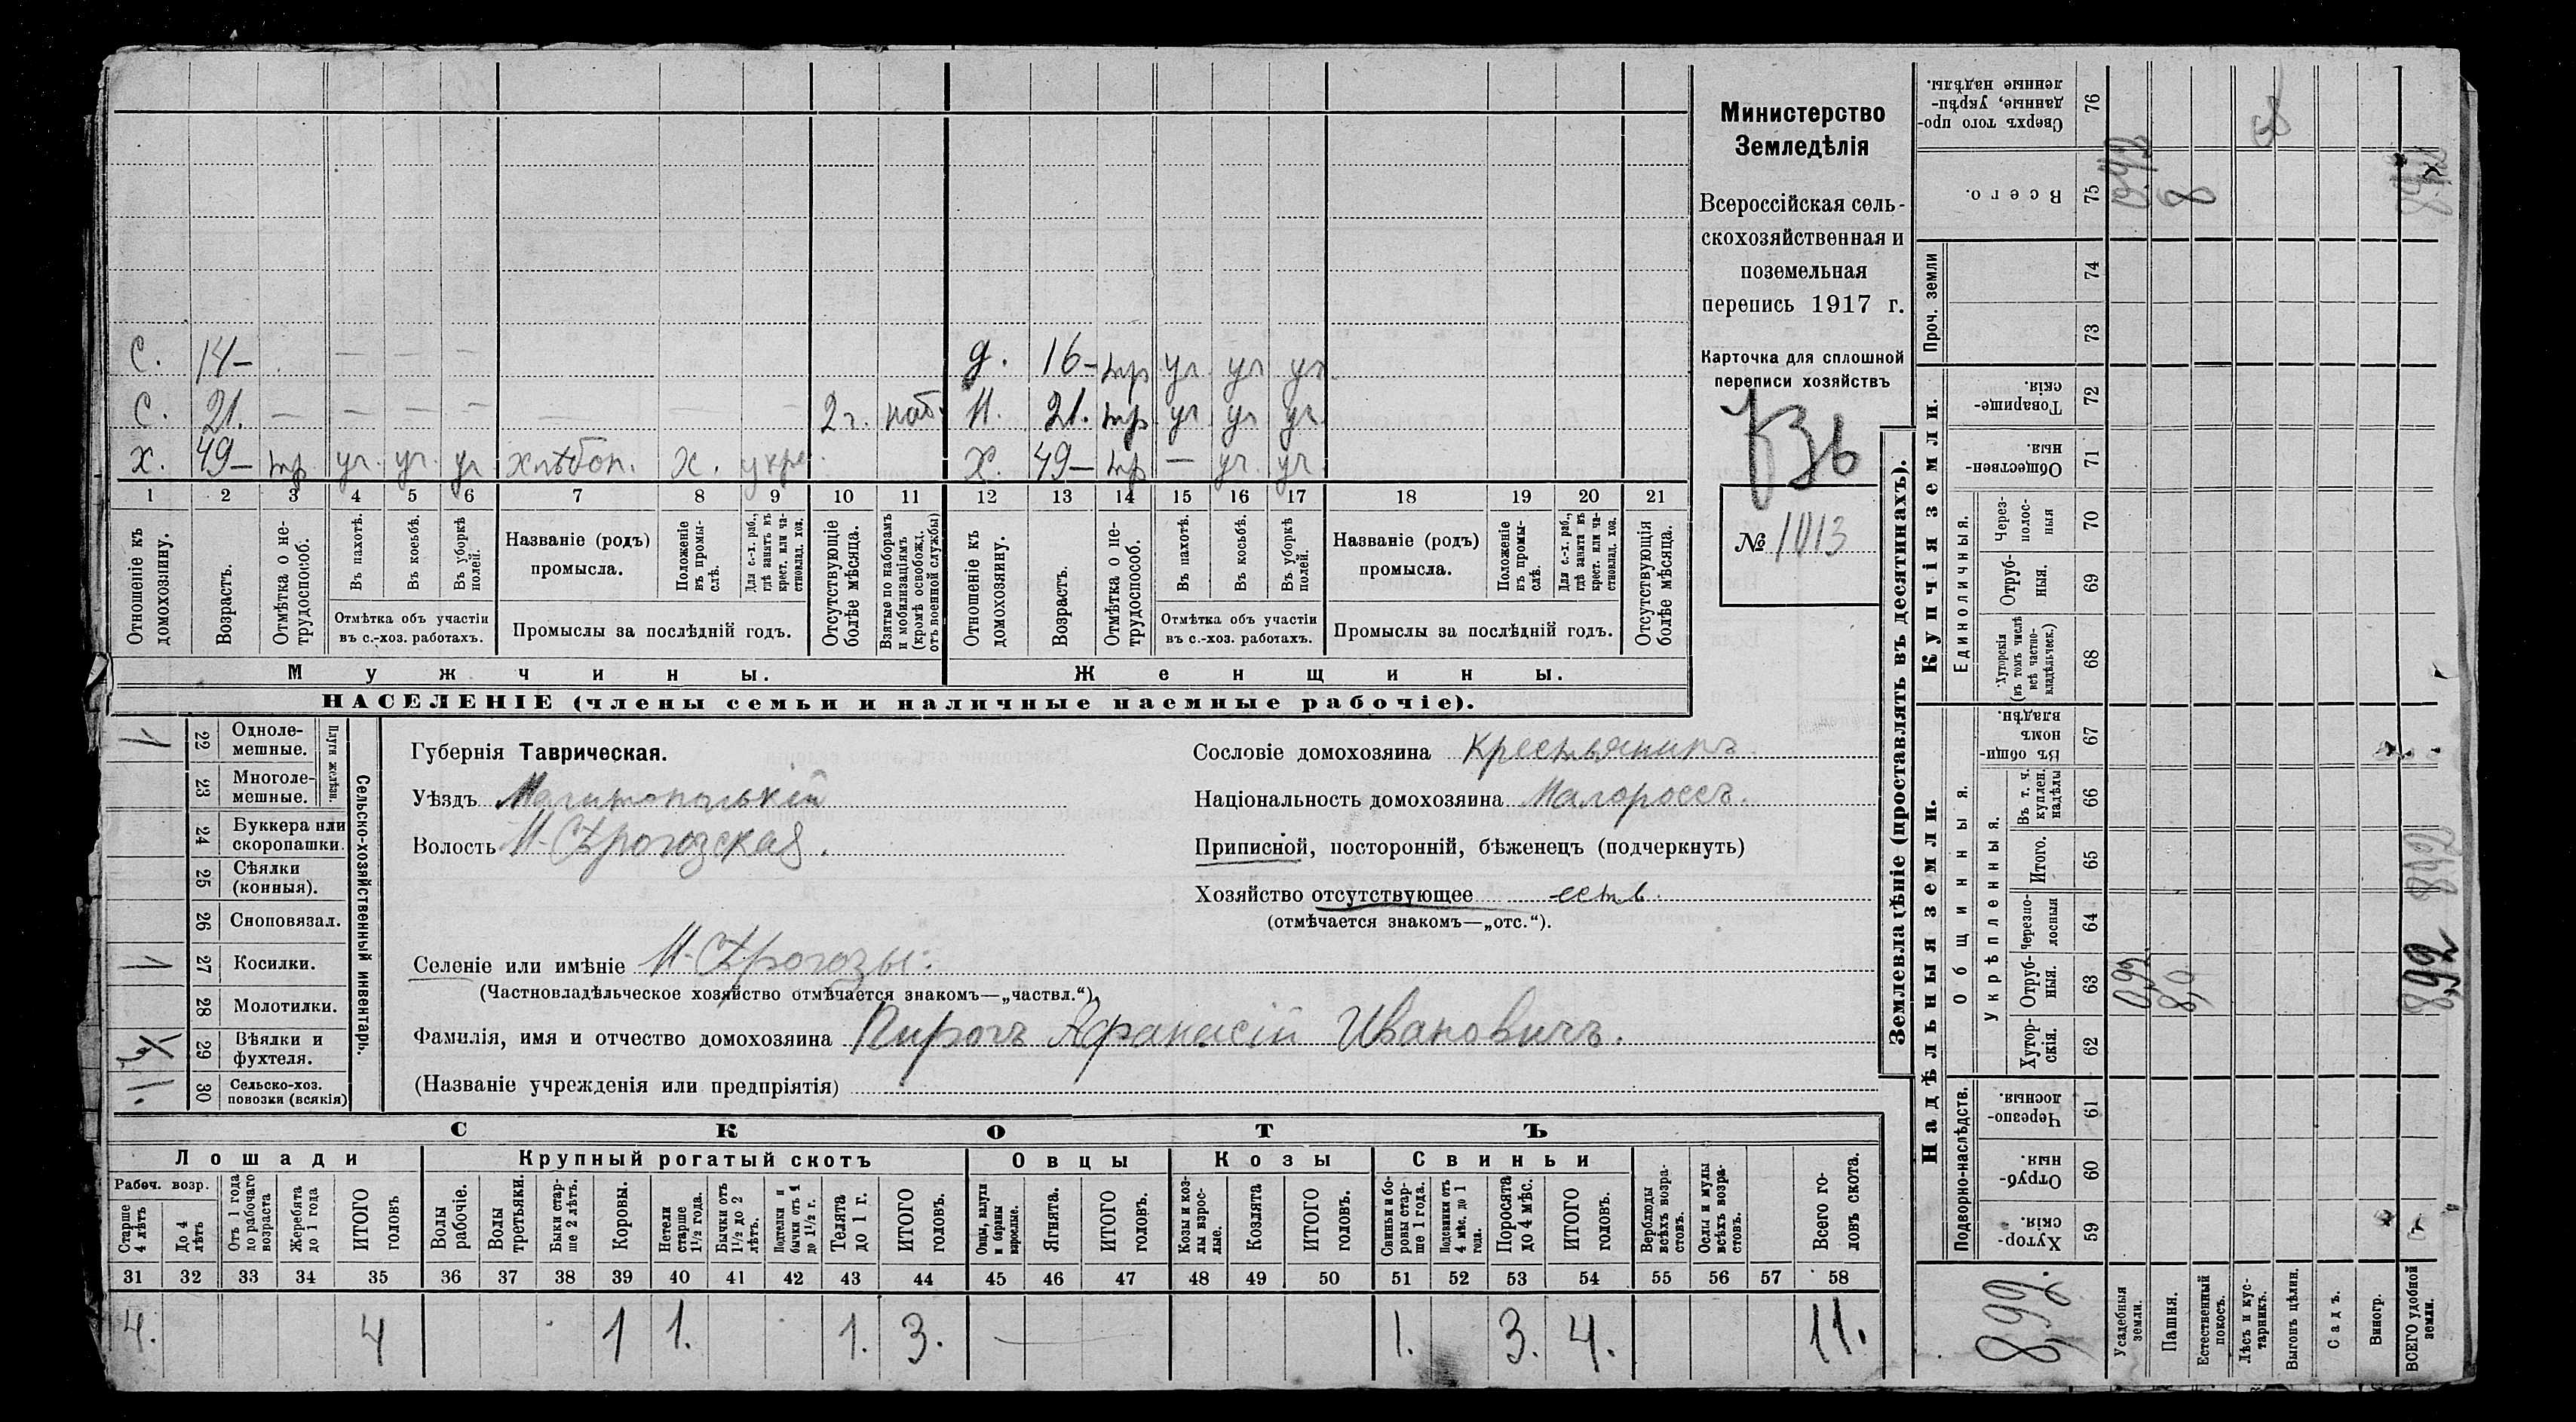 Министерство
Земледѣлія
Всероссійская сель-
скохозяйственная и
поземельная
перепись 1917 г.
Карточка для сплошной
переписи хозяйствъ
№ 1013
С. 14— — — — д. 16— тр уч. уч уч.
С. 21. — — — — — — — 2 г. наб. Н. 21. тр. уч уч уч.
Х. 49— тр уч. уч. уч хлѣбоп. х. Х. 49— тр — уч. уч.
1 2 3 4 5 6 7 8 9 10 11 12 13 14 15 16 17 18 19 20 21
Отношеніе къ домохозяину.
Возрастъ.
Отмѣтка о не-трудоспособ.
Въ пахотѣ.
Въ косьбѣ.
Въ уборкѣ полей.
Отмѣтка объ участіи
въ с.-хоз. работахъ.
Названіе (родъ)
промысла.
Положеніе въ промы-слѣ.
Для с.-х. раб., гдѣ занятъ въ крест. или ча-стновлад. хоз.
Промыслы за послѣдній годъ.
Отсутствующіе болѣе мѣсяца.
Взятые по наборамъ и мобилизаціямъ (кромѣ освобожд. отъ военной службы)
Отношеніе къ домохозяину.
Возрастъ.
Отмѣтка о не-трудоспособ.
Въ пахотѣ.
Въ косьбѣ.
Въ уборкѣ полей.
Отмѣтка объ участіи
въ с.-хоз. работахъ.
Названіе (родъ)
промысла.
Положеніе въ промы-слѣ.
Для с.-х. раб., гдѣ занята въ крест. или ча-стновлад. хоз.
Промыслы за послѣдній годъ.
Отсутствующія болѣе мѣсяца.
Мужчины.
Женщины.
НАСЕЛЕНІЕ (члены семьи и наличные наемные рабочіе).
Сельско-хозяйственный инвентарь.
Плуги желѣзн.
1 22 Одноле-мешные.
23 Многоле-мешные.
24 Буккера или скоропашки.
25 Сѣялки (конныя).
26 Сноповязал.
1 27 Косилки.
28 Молотилки.
29 Вѣялки и фухтеля.
1 30 Сельско-хоз. повозки (всякія)
Губернія Таврическая.
Уѣздъ Мелитопольскій
Волость Н-Сѣрогозская.
Селеніе или имѣніе Н-Сѣрогозы.
(Частновладѣльческое хозяйство отмѣчается знакомъ—„частвл.“).
Фамилія, имя и отчество домохозяина Пирогъ Афанасій Ивановичъ.
(Названіе учрежденія или предпріятія)
Сословіе домохозяина Крестьянинъ
Національность домохозяина Малороссъ.
Приписной, посторонній, бѣженецъ (подчеркнуть)
Хозяйство отсутствующее есть.
(отмѣчается знакомъ—„отс.“).
СКОТЪ
Лошади
Крупный рогатый скотъ
Овцы
Козы
Свиньи
Рабоч. возр.
Старше 4 лѣтъ
До 4 лѣтъ
Отъ 1 года до рабочаго возраста
Жеребята до 1 года
ИТОГО головъ
Волы рабочіе.
Волы третьяки.
Быки стар-ше 2 лѣтъ.
Коровы.
Нетели старше 1½ года.
Бычки отъ 1½ до 2 лѣтъ.
Подтелки и бычки отъ 1 до 1½ г.
Телята до 1 г.
ИТОГО головъ.
Овцы, валухи и бараны взрослые.
Ягнята.
ИТОГО головъ.
Козы и коз-лы взрос-лые.
Козлята
ИТОГО головъ.
Свиньи и бо-ровы стар-ше 1 года.
Подсвинки отъ 4 мѣс. до 1 года.
Поросята до 4 мѣс.
ИТОГО головъ.
Верблюды всѣхъ возра-стовъ.
Ослы и мулы всѣхъ возра-стовъ.
Всего го-ловъ скота.
31 32 33 34 35 36 37 38 39 40 41 42 43 44 45 46 47 48 49 50 51 52 53 54 55 56 57 58
4. 4 1 1. 1. 3. — 1. 3. 4. 11.
Землевладѣніе (проставлять въ десятинахъ).
Купчія земли.
Надѣльныя земли.
Сверхъ того про-данные, укрѣп-ленные надѣлы. 76
Всего. 75
Проч. земли 74 73
Товарище-скія. 72
Обществен-ныя 71
Единоличныя.
Через-полос-ныя 70
Отруб-ныя. 69
Хуторскія (въ томъ числѣ всѣ частно-владѣльческ.) 68
Общинныя.
Въ общин-номъ владѣн. 67
Укрѣпленныя.
Въ т. ч. куплен. надѣлы 66
Итого. 65
Черезпо-лосныя 64
Отруб-ныя. 63 0,92 8,0
Хутор-скія. 62
Подворно-наслѣдств.
Черезпо-лосныя. 61
Отруб-ныя. 60
Хутор-скія. 59
8,99.
Усадебныя земли.
Пашня.
Естественный покосъ.
Лѣсъ и кус-тарникъ.
Выгонъ цѣлин.
Садъ.
Виногр.
ВСЕГО удобной земли.